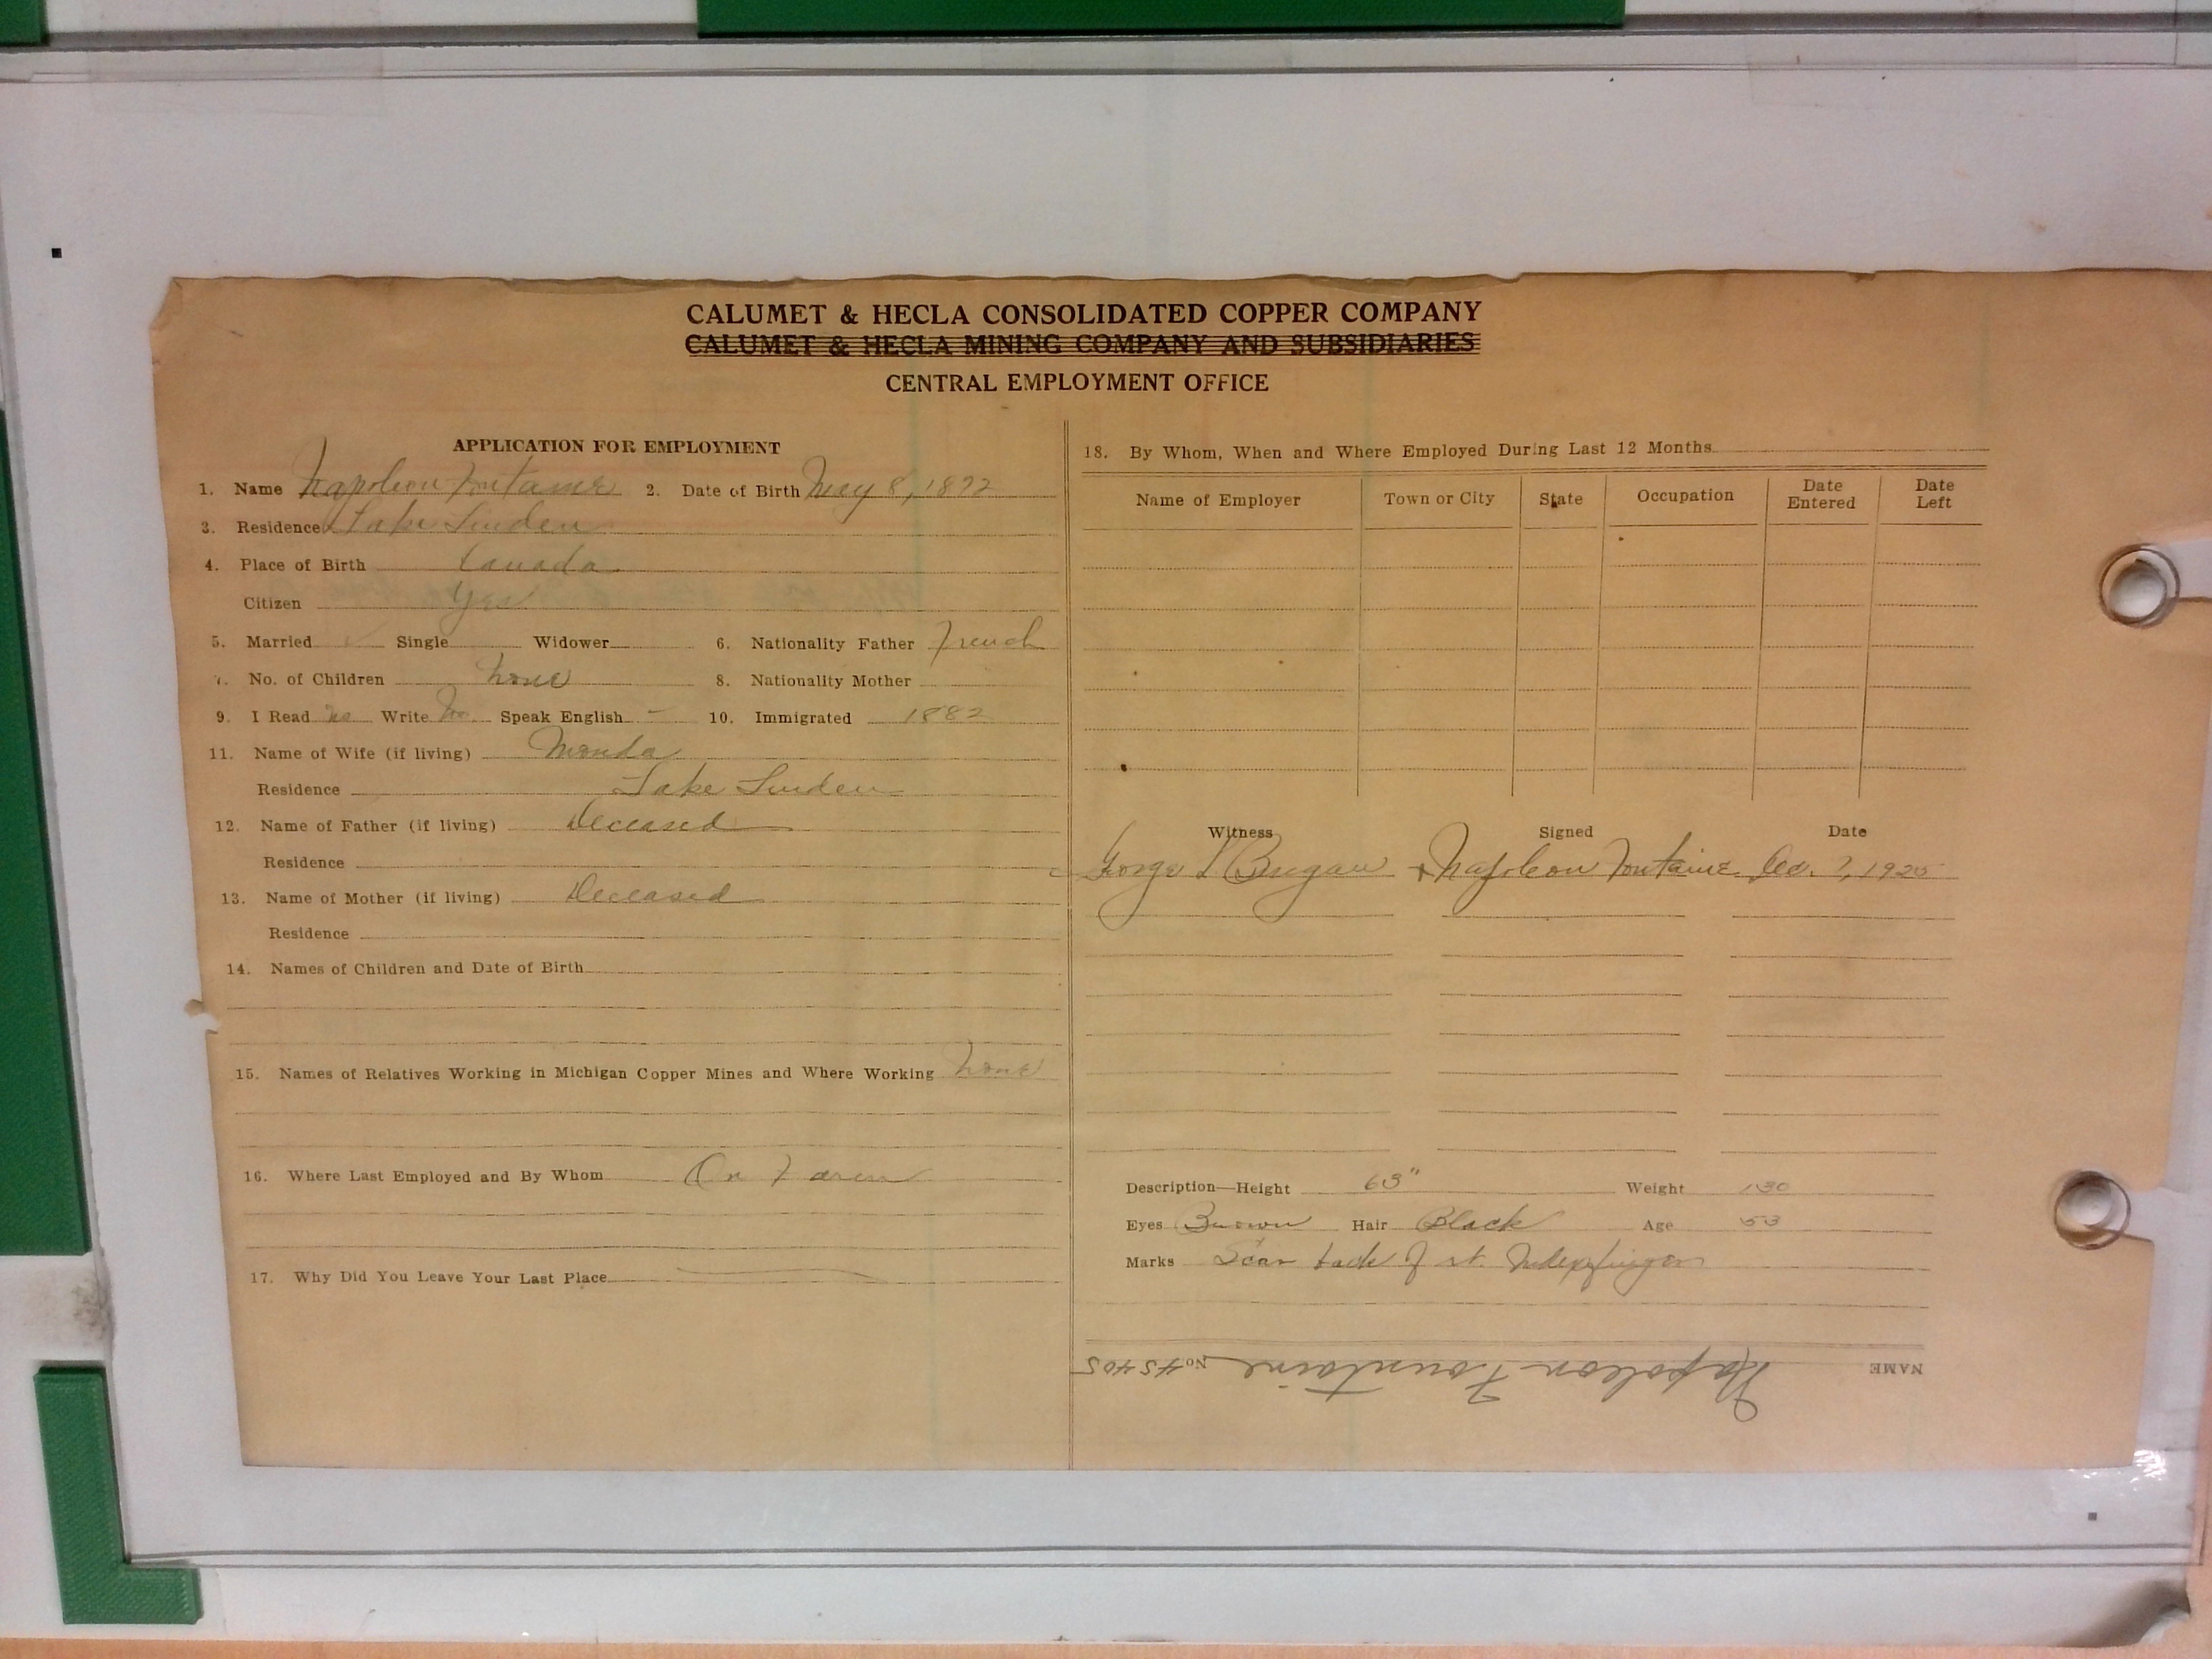 CALUMET & HECLA CONSOLIDATED COPPER COMPANY
CALUMET & HECLA MINING COMPANY AND SUBSIDIARIES
CENTRAL EMPLOYMENT OFFICE
APPLICATION FOR EMPLOYMENT
1. Name Napoleon Fontaine 2. Date of Birth May 8, 1872
3. Residence Lake Linden
4. Place of Birth Canada
Citizen Yes
5. Married ✓ Single Widower 6. Nationality Father French
7. No. of Children None 8. Nationality Mother
9. I Read No Write No Speak English - 10. Immigrated 1882
11. Name of Wife (if living)
Residence Lake Linden
12. Name of Father (if living) Deceased
Residence
13. Name of Mother (if living) Deceased
Residence
14. Names of Children and Date of Birth
15. Names of Relatives Working in Michigan Copper Mines and Where Working None
16. Where Last Employed and By Whom On Farm
17. Why Did You Leave Your Last Place
18. By Whom, When and Where Employed During Last 12 Months
Name of Employer Town or City State Occupation Date Entered Date Left
Witness Signed Date
George Napoleon Fontaine 1925
Description—Height 63" Weight 130
Eyes Brown Hair Black Age 53
Marks Scar back of rt. Index finger
NAME Napoleon Fountaine No. 45405